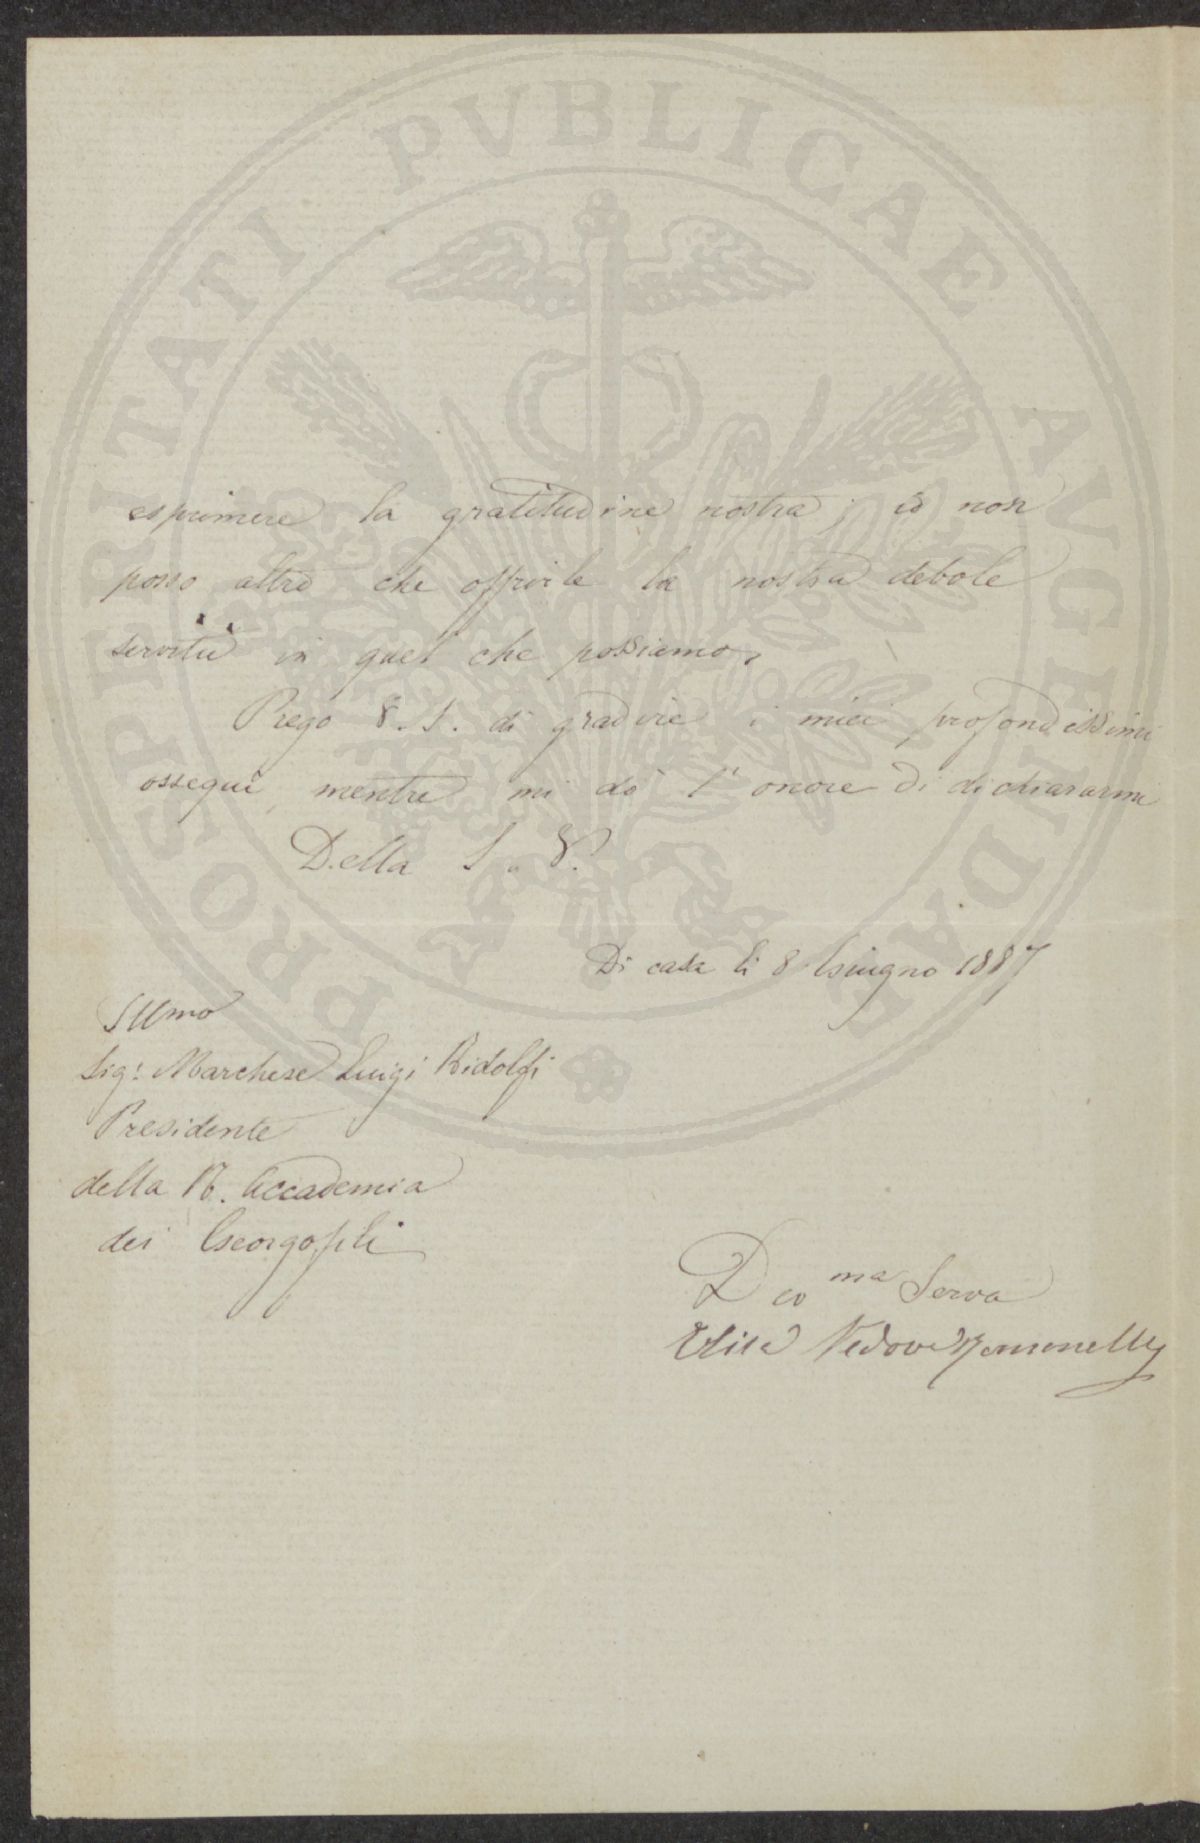 PROSPERITATI PVBLICAE AVGENDAE
esprimere la gratitudine nostra; io non
posso altro che offrirle la nostra debole
servitù in quel che possiamo.
Prego V. S. di gradire i miei profondissimi
ossequi, mentre mi dò l'onore di dichiararmi
Della S. V.
Di casa li 8 Giugno 1887
Illmo
Sig: Marchese Luigi Ridolfi
Presidente
della R. Accademia
dei Georgofili
Devma Serva
Elisa Vedova